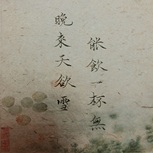 晚來天欲雪
能飲一杯無